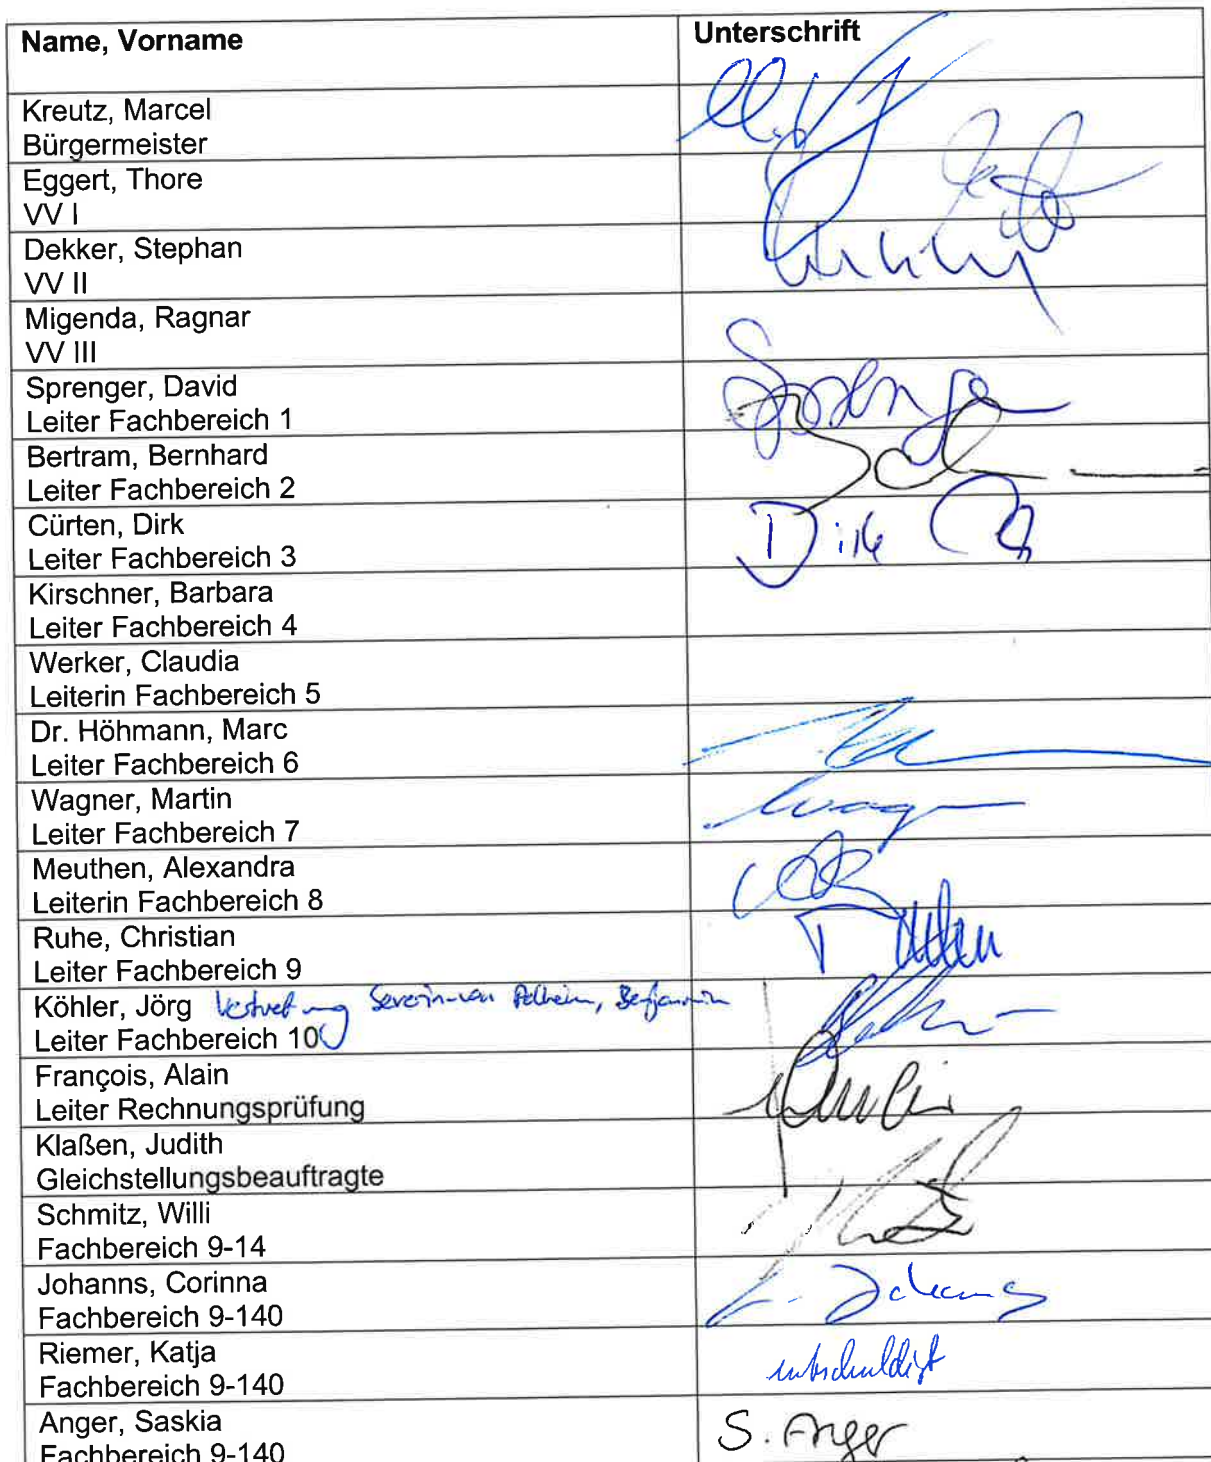 Name, Vorname Unterschrift
Kreutz, Marcel
Bürgermeister
Eggert, Thore
VV I
Dekker, Stephan
VV II
Migenda, Ragnar
VV III
Sprenger, David
Leiter Fachbereich 1
Bertram, Bernhard
Leiter Fachbereich 2
Cürten, Dirk
Leiter Fachbereich 3
Dirk
Kirschner, Barbara
Leiter Fachbereich 4
Werker, Claudia
Leiterin Fachbereich 5
Dr. Höhmann, Marc
Leiter Fachbereich 6
Wagner, Martin
Leiter Fachbereich 7
Meuthen, Alexandra
Leiterin Fachbereich 8
Ruhe, Christian
Leiter Fachbereich 9
Köhler, Jörg Vertretung Severin-van Benjamin
Leiter Fachbereich 10
François, Alain
Leiter Rechnungsprüfung
Klaßen, Judith
Gleichstellungsbeauftragte
Schmitz, Willi
Fachbereich 9-14
Johanns, Corinna
Fachbereich 9-140
Riemer, Katja entschuldigt
Fachbereich 9-140
Anger, Saskia S. Anger
Fachbereich 9-140